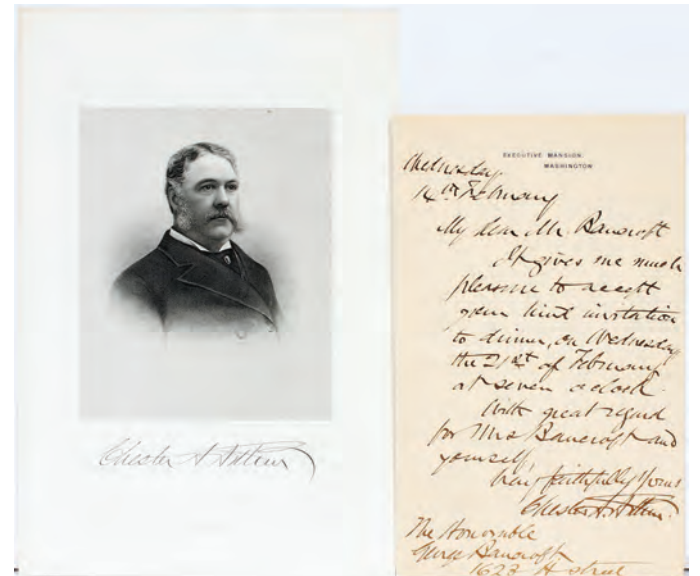 Chester A Arthur
EXECUTIVE MANSION.
WASHINGTON
Wednesday
14th February
My dear Mr. Bancroft
It gives me much
pleasure to accept
your kind invitation
to dinner, on Wednesday
the 21st of February
at seven o'clock.
With great regard
for Mrs Bancroft and
yourself,
Very faithfully yours
Chester A. Arthur.
The Honorable
George Bancroft.
1623 H street